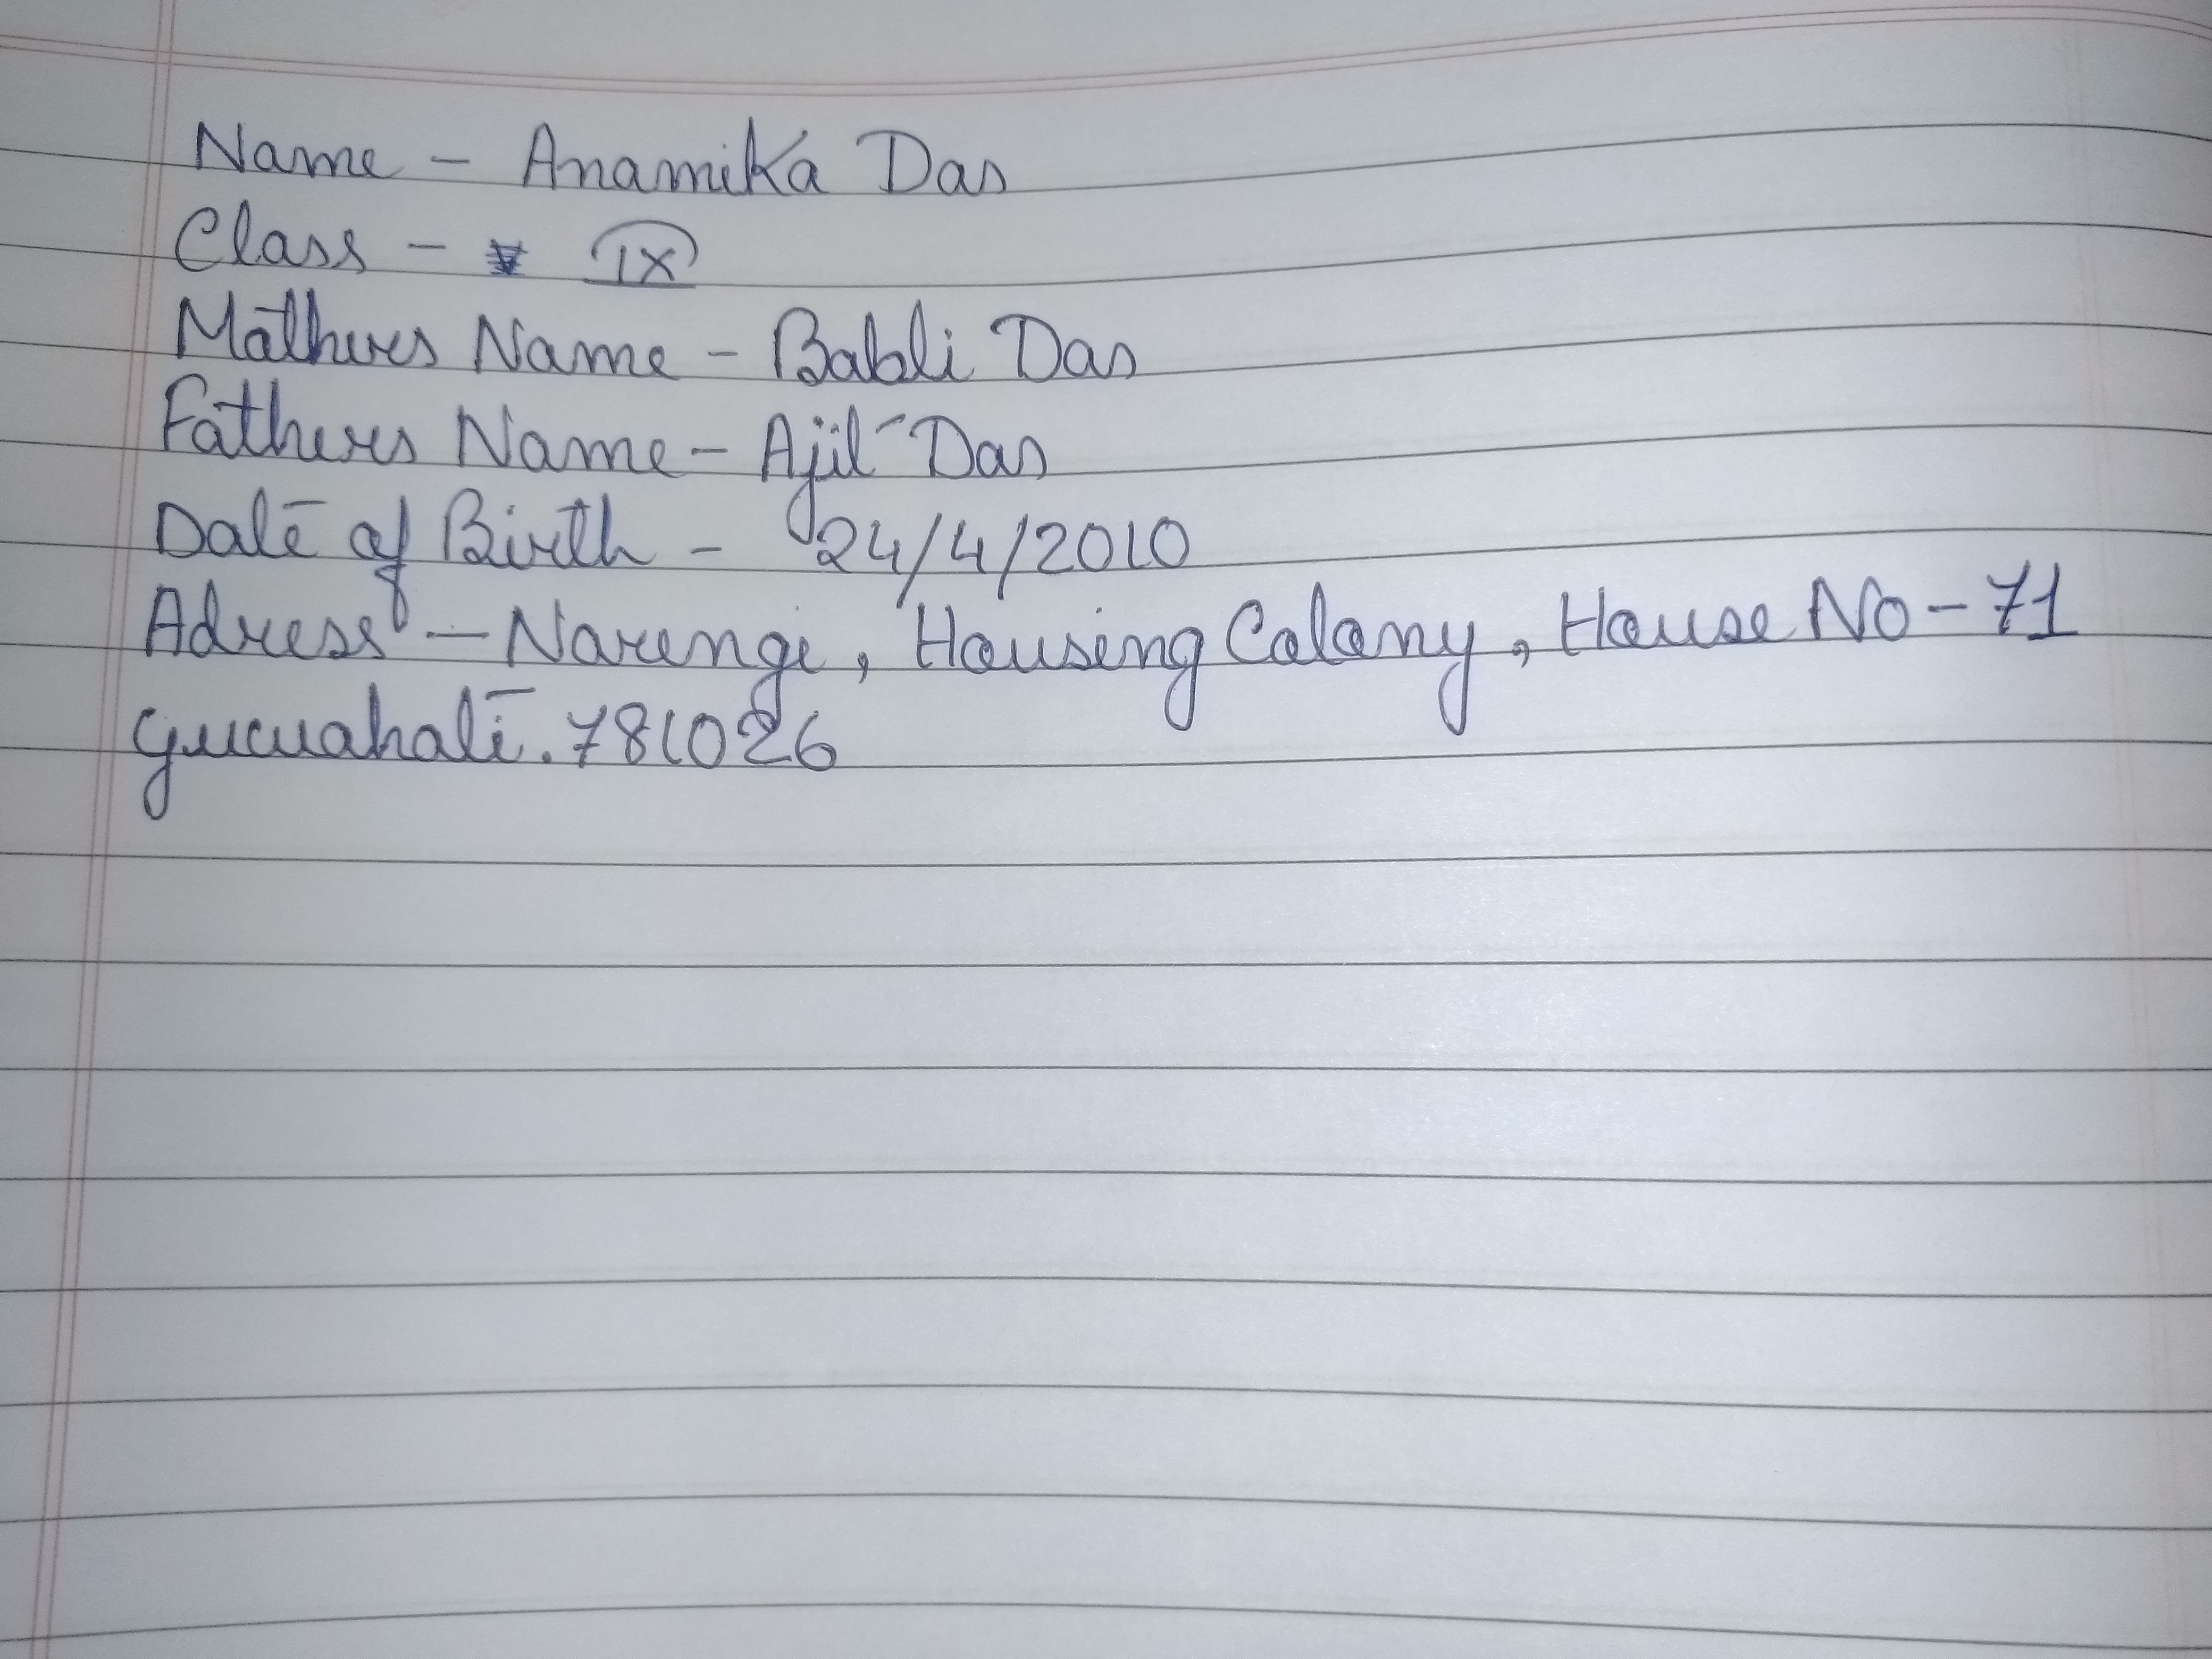 Name - Anamika Das
Class - IX
Mothers Name - Babli Das
Fathers Name - Ajit Das
Date of Birth - 24/4/2010
Adress - Narengi, Housing Colony, House No - 71
Guwahati. 781026